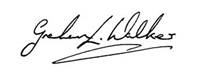 Graham L. Walker